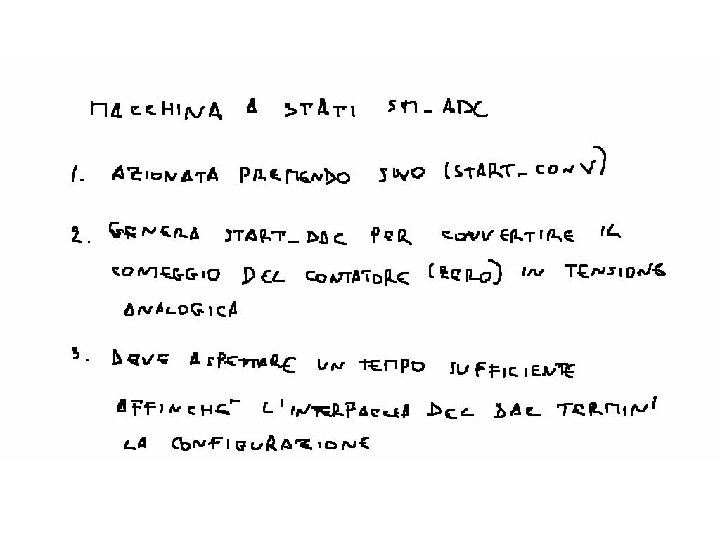 MACCHINA A STATI SM_ADC
1. AZIONATA PREMENDO SW0 (START_CONV)
2. GENERA START_DAC PER CONVERTIRE IL
CONTEGGIO DEL CONTATORE (ZERO) IN TENSIONE
ANALOGICA
3. DEVE ASPETTARE UN TEMPO SUFFICIENTE
AFFINCHE' L'INTERFACCIA DEL DAC TERMINI
LA CONFIGURAZIONE